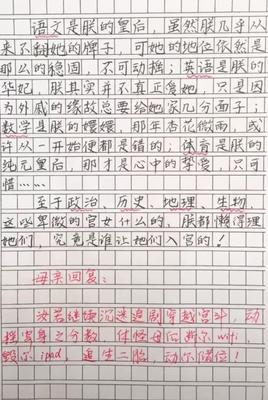 语文是朕的皇后，虽然朕几乎从
来不翻她的牌子，可她的地位依然是
那么的稳固，不可动摇；英语是朕的
华妃，朕其实并不真正宠她，只是因
为外戚的缘故总要给她家几分面子；
数学是朕的嬛嬛，那年杏花微雨，或
许从一开始便都是错的；体育是朕的
纯元皇后，那才是心中的挚爱，只可
惜……
至于政治、历史、地理、生物，
这些卑微的宫女什么的，朕都懒得理
她们，究竟是谁让她们入宫的！
母亲回复：
汝若继续沉迷追剧穿越宫斗，动
摇宫身之分数，休怪母后断尔wifi，
毁尔ipad，追生二胎，动尔储位！